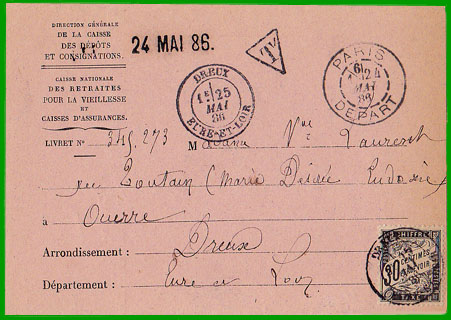 DIRECTION GÉNÉRALE
DE LA CAISSE
DES DÉPÔTS
ET CONSIGNATIONS.
CAISSE NATIONALE
DES RETRAITES
POUR LA VIEILLESSE
ET
CAISSES D'ASSURANCES.
24 MAI 86.
T
PARIS
24
MAI
86
DEPART
DREUX
1E 25
MAI
86
EURE-ET-LOIR
LIVRET No 345.273
Madame Vve Laurent
née Toutain (Marie Désirée Eudoxie
à Ouerre
Arrondissement : Dreux
Département : Eure et Loir
CHIFFRE
30
CENTIMES
TAXE